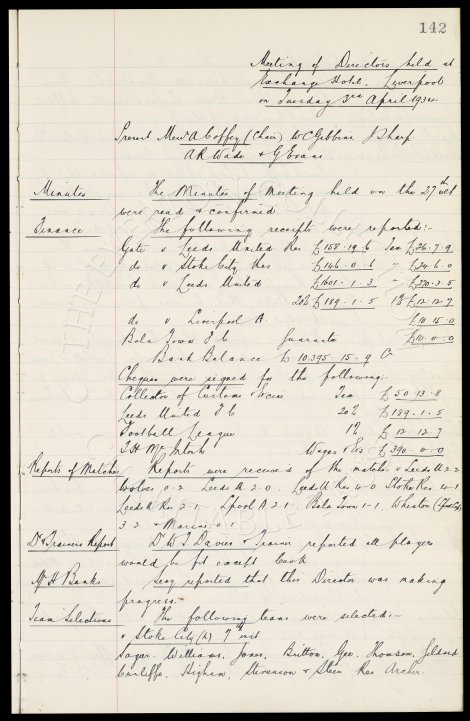 142
Meeting of Directors held at
Exchange Hotel, Liverpool
on Tuesday 3rd April 1934
Present Messrs A Coffey (Chair) W C Gibbins J Sharp
A R Wade & G Evans
Minutes The Minutes of Meeting held on the 27th ult
were read & confirmed
Finance The following receipts were reported:-
Gate v Leeds United Res £158.19.6 Tax £26.7.9
do v Stoke City Res £146.0.6 - £24.6.0
do v Leeds United £1601.1.3 - £270.3.5
20% £189.1.5 1% £12.12.7
do v Liverpool A £10.15.0
Bala Town F C Guarantee £10.0.0
Bank Balance £10,395.15.9
Cheques were signed for the following:-
Collector of Customs & Excise Tax £50.13.8
Leeds United F C 20% £189.1.5
Football League 1% £12.12.7
T H McIntosh Wages & £390.0.0
Reports of Matches Reports were received of the matches v Leeds U 2.2
Wolves 0.2 Leeds U 2.0 Leeds U Res 4-0 Stoke Res 4-1
Leeds U Res 2.1 Lpool A 2.1 Bala Town 1-1
3.2 & Marine 0.1
Dr & Trainers Report Dr W J Davies & Trainer reported all players
would be fit except Cook
Mr H Banks Secy reported that this Director was making
progress.
Team Selections The following teams were selected:-
v Stoke City (h) 7th inst
Sagar. Williams, Jones, Britton, Gee, Thomson, Geldard
Cunliffe, Higham, Stevenson & Stein Res Archer.